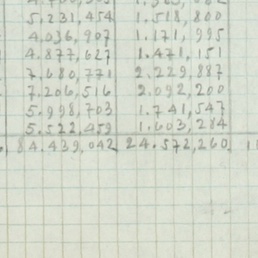 5,231,454 1.518,800
4,036,907 1.171,995
4.877,627 1.471,151
7.680,771 2.229,887
7.206,516 2.092,200
5.998,703 1.741,547
5.522,459 1.603,284
84.439,042 24.572,260